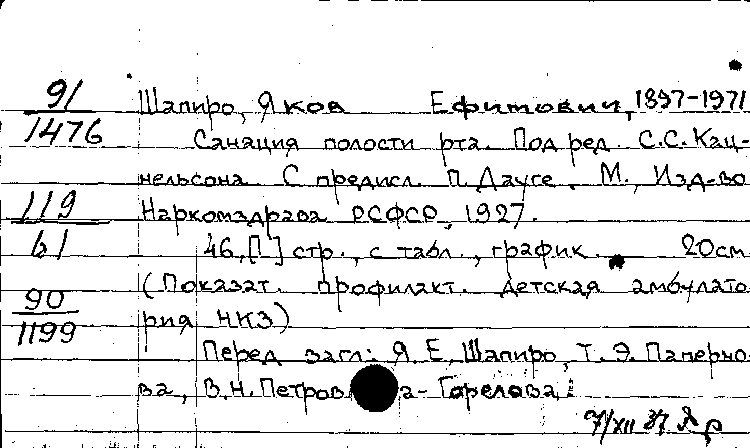 91
1476
119
61
90
1199
Шапиро, Яков Ефимович, 1897-1971
Санация полости рта. Под ред. С.С. Кац-
нельсона. С предисл. П. Дауге. М., Изд-во
Наркомздрава РСФСР, 1927.
46,[1] стр., с табл., график. 20см
(Показат. профилакт. детская амбулато
рия НКЗ)
Перед загл: Я. Е. Шапиро, Т. Э. Паперно
ва, В.Н. Петров а-Горелова.
7/XII 37